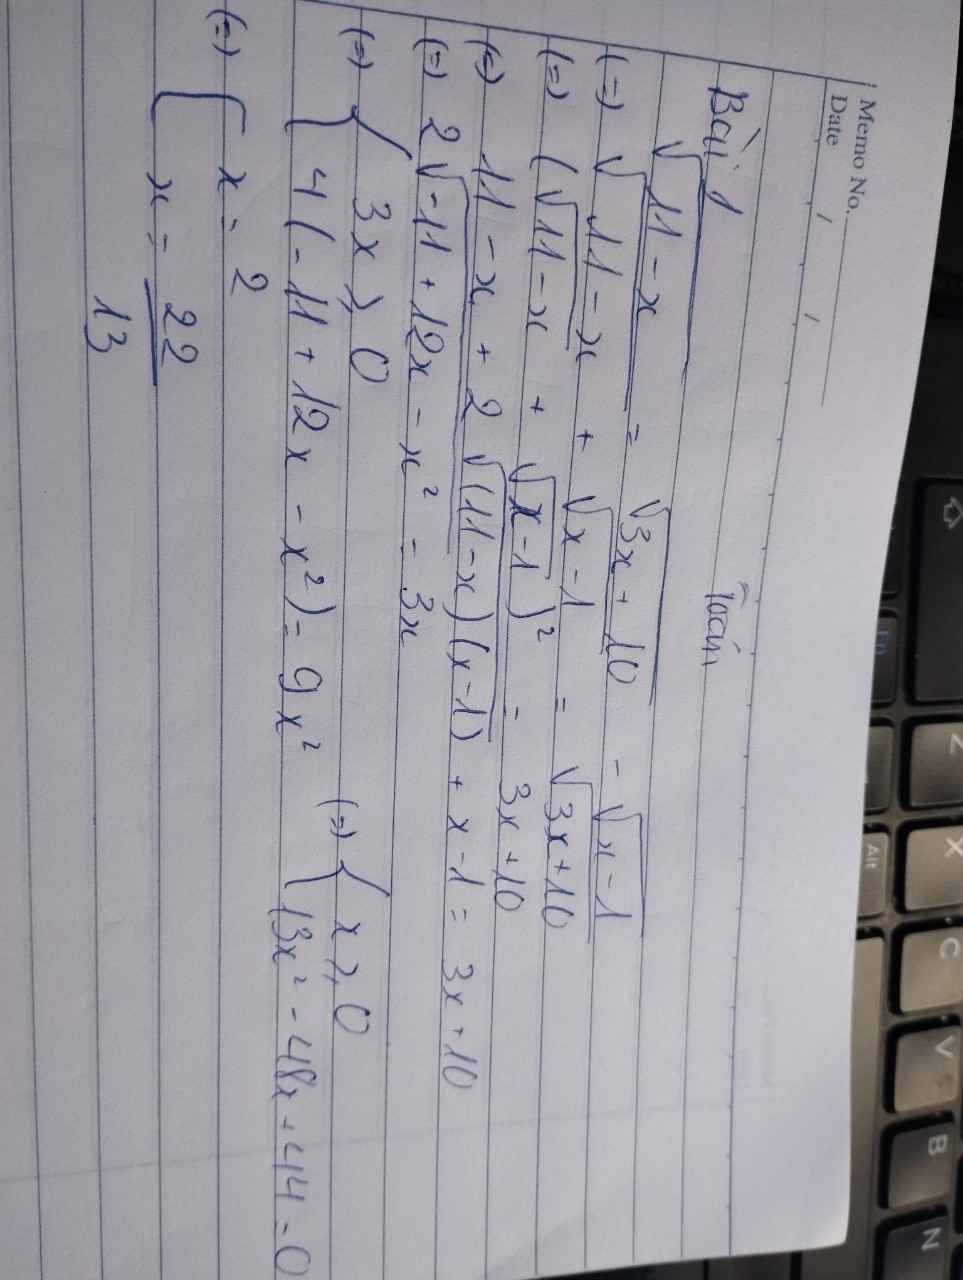 Memo No.
Date / /
Bài 1 Toán
√11-x = √3x+10 - √x-1
(=) √11-x + √x-1 = √3x+10
(=) (√11-x + √x-1)² = 3x+10
(=) 11-x + 2√(11-x)(x-1) + x-1 = 3x+10
(=) 2√-11+12x-x² = 3x
(=) { 3x ⩾ 0
4(-11+12x-x²) = 9x²
(=) { x ⩾ 0
13x²-48x+44=0
(=) [ x = 2
x = 22/13
Fn
Alt
Z
X
C
V
B
N